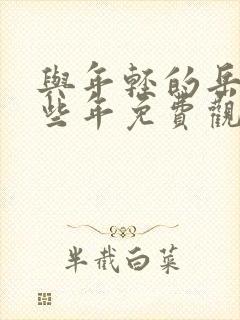 與年輕的岳
些年免費觀
半截白菜